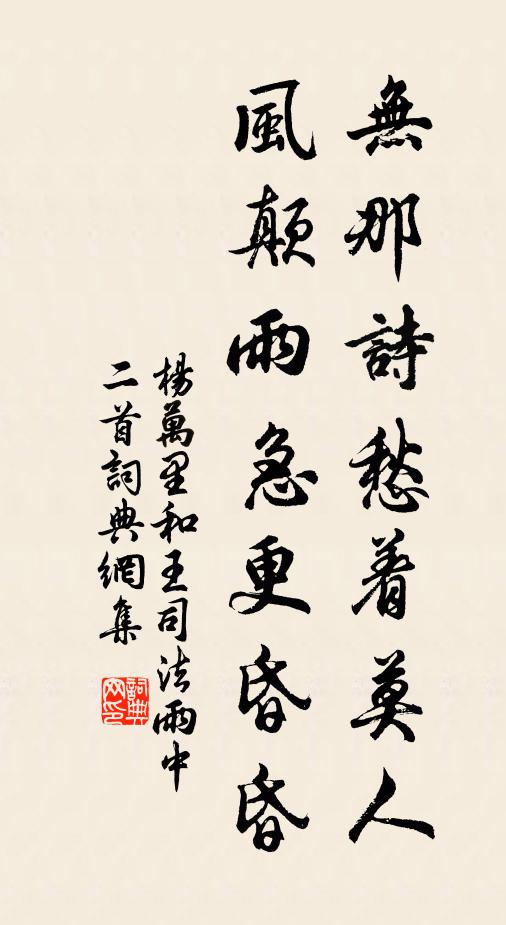 無那詩愁着莫人
風顛雨急更昏昏
楊萬里和王司法雨中
二首詞典網集
詞典
网印